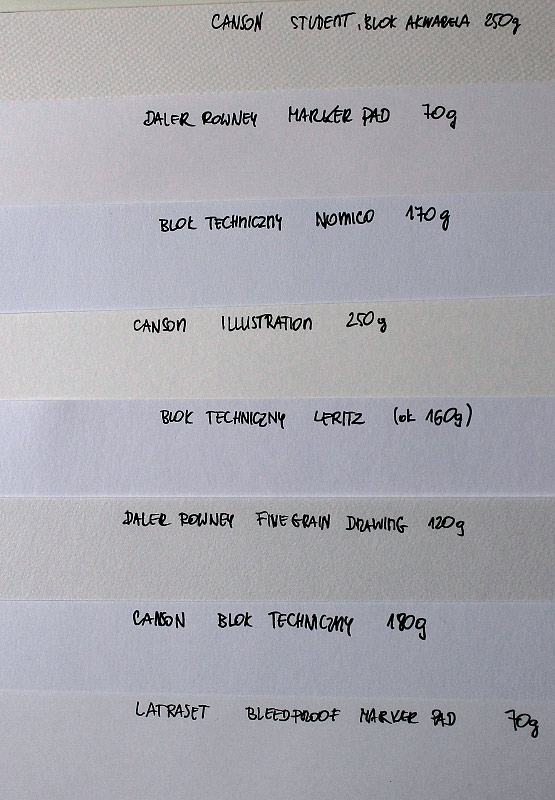 CANSON STUDENT, BLOK AKWARELA 250g
DALER ROWNEY MARKER PAD 70g
BLOK TECHNICZNY NOMICO 170g
CANSON ILLUSTRATION 250g
BLOK TECHNICZNY LERITZ (ok 160g)
DALER ROWNEY FINE GRAIN DRAWING 120g
CANSON BLOK TECHNICZNY 180g
LATRASET BLEEDPROOF MARKER PAD 70g